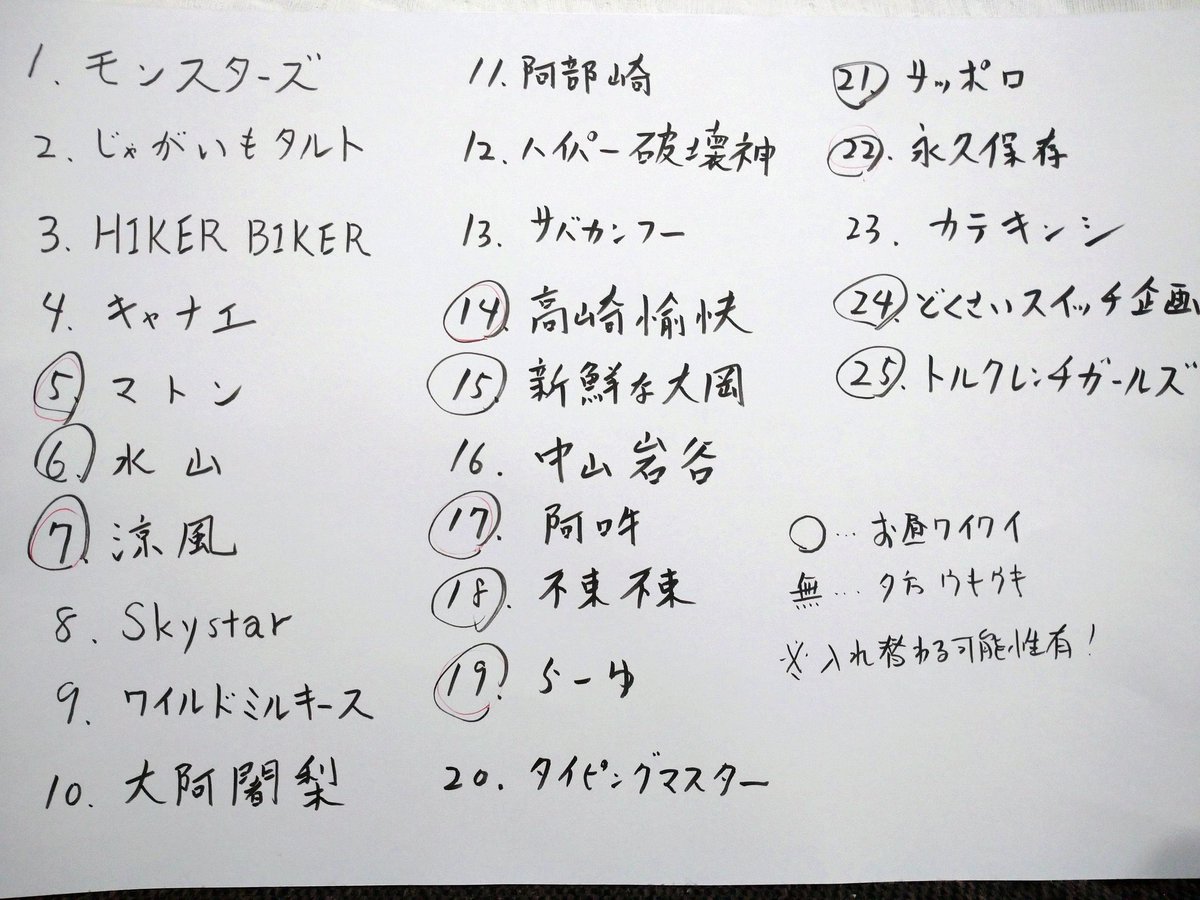 1. モンスターズ
2. じゃがいもタルト
3. HIKER BIKER
4. キャナエ
5. マトン
6. 水山
7. 涼風
8. Skystar
9. ワイルドミルキース
10. 大阿闍梨
11. 阿部崎
12. ハイパー破壊神
13. サバカンフー
14. 高崎愉快
15. 新鮮な大岡
16. 中山岩谷
17. 阿吽
18. 不東不東
19. らーゆ
20. タイピングマスター
21. サッポロ
22. 永久保存
23. カテキンシ
24. どくさいスイッチ企画
25. トルクレンチガールズ
○…お昼ワイワイ
無…夕方ウキウキ
※入れ替わる可能性有!